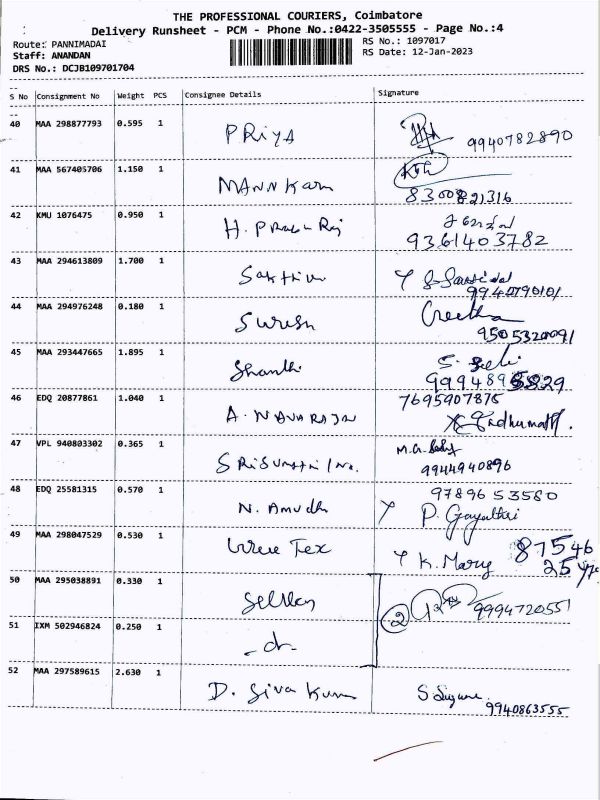 THE PROFESSIONAL COURIERS, Coimbatore
Delivery Runsheet - PCM - Phone No.:0422-3505555 - Page No.:4
Route: PANNIMADAI
RS No.: 1097017
Staff: ANANDAN
RS Date: 12-Jan-2023
DRS No.: DCJB109701704
S No Consignment No Weight PCS Consignee Details Signature
40 MAA 298877793 0.595 1 PRiYA 9940782890
41 MAA 567405706 1.150 1
8300821316
42 KMU 1076475 0.950 1
9361403782
43 MAA 294613809 1.700 1
44 MAA 294976248 0.180 1 Suresh Geetha
9505320091
45 MAA 293447665 1.895 1 Shanthi
46 EDQ 20877861 1.040 1 7695907876
A. NAVARAJN
47 VPL 940803302 0.365 1
9944940896
48 EDQ 25581315 0.570 1 9789653580
N. Amudh P. Gayathri
49 MAA 298047529 0.530 1 Tex K. Mary 87546
50 MAA 295038891 0.330 1 2 9994720551
51 IXM 502946824 0.250 1 -do-
52 MAA 297589615 2.630 1 D. Siva Kumar
9940863555